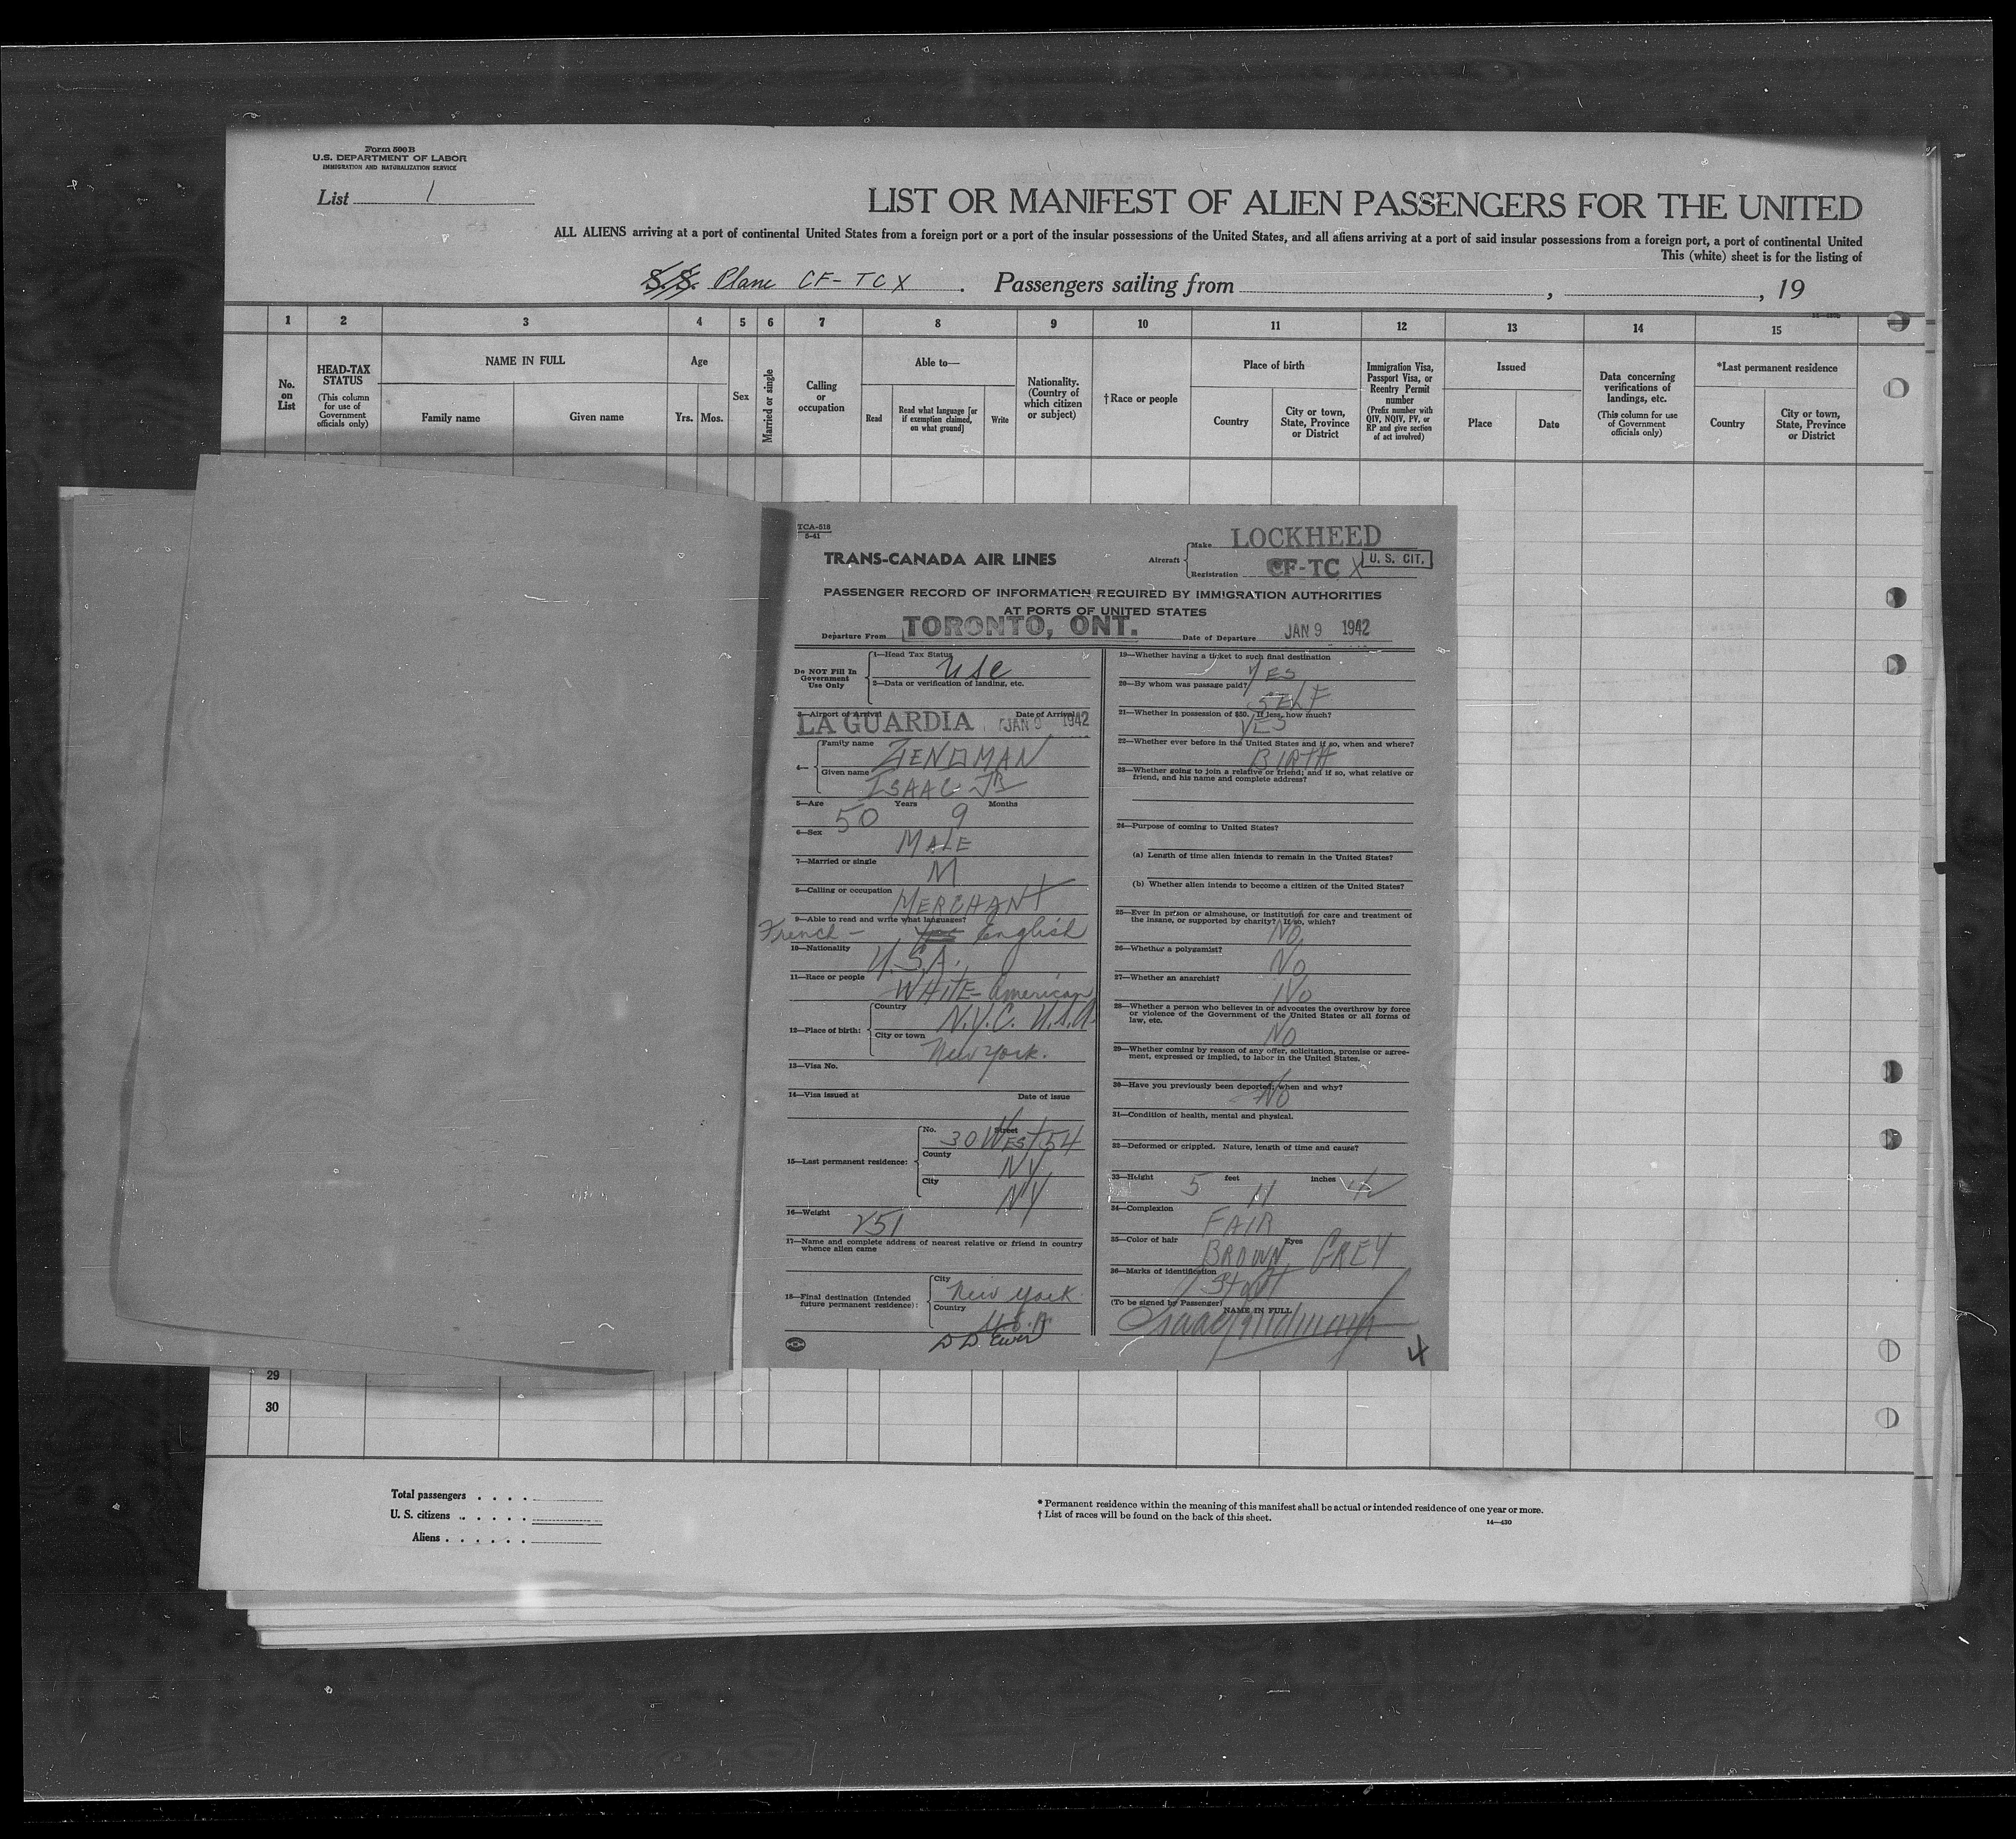 Form 500B
U.S. DEPARTMENT OF LABOR
IMMIGRATION AND NATURALIZATION SERVICE
List 1
LIST OR MANIFEST OF ALIEN PASSENGERS FOR THE UNITED
ALL ALIENS arriving at a port of continental United States from a foreign port or a port of the insular possessions of the United States, and all aliens arriving at a port of said insular possessions from a foreign port, a port of continental United
This (white) sheet is for the listing of
S.S. Plane CF-TCX. Passengers sailing from , , 19
1 2 3 4 5 6 7 8 9 10 11 12 13 14 15
No. on List
HEAD-TAX STATUS
(This column for use of Government officials only)
NAME IN FULL
Family name Given name
Age
Yrs. Mos.
Sex
Married or single
Calling or occupation
Able to—
Read
Read what language [or if exemption claimed, on what ground]
Write
Nationality. (Country of which citizen or subject)
†Race or people
Place of birth
Country
City or town, State, Province or District
Immigration Visa, Passport Visa, or Reentry Permit number
(Prefix number with QIV, NQIV, PV, or RP and give section of act involved)
Issued
Place Date
Data concerning verifications of landings, etc.
(This column for use of Government officials only)
*Last permanent residence
Country
City or town, State, Province or District
TCA-518
5-41
TRANS-CANADA AIR LINES
Aircraft
Make LOCKHEED
Registration CF-TC X
U. S. CIT.
PASSENGER RECORD OF INFORMATION REQUIRED BY IMMIGRATION AUTHORITIES
AT PORTS OF UNITED STATES
Departure From TORONTO, ONT. Date of Departure JAN 9 1942
Do NOT Fill In
Government
Use Only
1—Head Tax Status USC
2—Data or verification of landing, etc.
3—Airport of Arrival Date of Arrival
LA GUARDIA JAN 9 1942
4—
Family name
Given name ISAAC JR
5—Age 50 Years 9 Months
6—Sex MALE
7—Married or single M
8—Calling or occupation MERCHANT
9—Able to read and write what languages?
French — English
10—Nationality U.S.A.
11—Race or people WHITE - American
12—Place of birth:
Country N.Y.C. U.S.A.
City or town New York.
13—Visa No.
14—Visa issued at Date of issue
15—Last permanent residence:
No. 30 WEST 54 Street
County NY
City NY
16—Weight 251
17—Name and complete address of nearest relative or friend in country
whence alien came
18—Final destination (Intended
future permanent residence):
City New York
Country U.S.A.
19—Whether having a ticket to such final destination
YES
20—By whom was passage paid?
SELF
21—Whether in possession of $50. If less, how much?
YES
22—Whether ever before in the United States and if so, when and where?
BIRTH
23—Whether going to join a relative or friend; and if so, what relative or
friend, and his name and complete address?
24—Purpose of coming to United States?
(a) Length of time alien intends to remain in the United States?
(b) Whether alien intends to become a citizen of the United States?
25—Ever in prison or almshouse, or institution for care and treatment of
the insane, or supported by charity? If so, which?
NO
26—Whether a polygamist?
NO
27—Whether an anarchist?
NO
28—Whether a person who believes in or advocates the overthrow by force
or violence of the Government of the United States or all forms of
law, etc.
NO
29—Whether coming by reason of any offer, solicitation, promise or agree-
ment, expressed or implied, to labor in the United States.
30—Have you previously been deported; when and why?
NO
31—Condition of health, mental and physical.
32—Deformed or crippled. Nature, length of time and cause?
33—Height 5 feet 11 inches
34—Complexion FAIR
35—Color of hair BROWN Eyes GREY
36—Marks of identification
(To be signed by Passenger) NAME IN FULL
4
29
30
Total passengers . . . .
U. S. citizens . . . . .
Aliens . . . . . .
* Permanent residence within the meaning of this manifest shall be actual or intended residence of one year or more.
† List of races will be found on the back of this sheet.
14—430